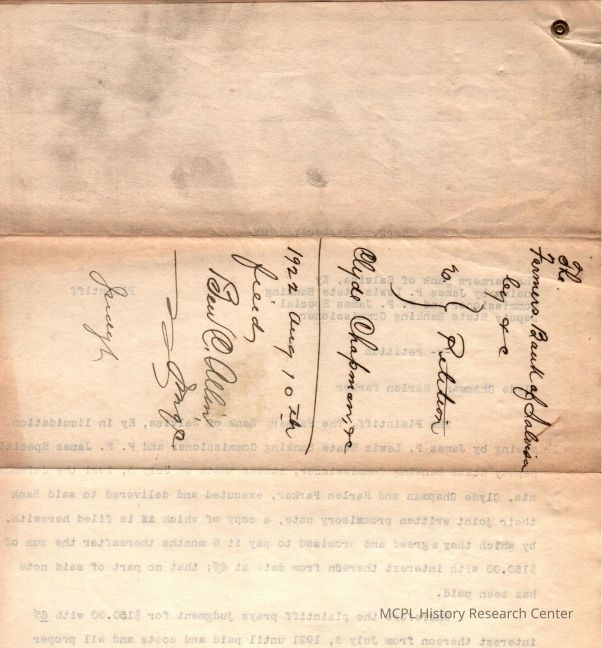 The
Farmers Bank of Salvisa
by &c
vs } Petition
Clyde Chapman, &c
1922 Aug 10th
filed,
Ben C. Allin
The Farmers Bank of Salvisa, Ky
suing by James P. Lewis State Banking
Commissioner and F. P. James Special
Deputy State Banking Commissioner
Plaintiff
Petition
Clyde Chapman, Harlen Parker
Plaintiff, The Farmers Bank of Salvisa, Ky in liquidation
suing by James P. Lewis State Banking Commissioner and F. P. James Special
nts, Clyde Chapman and Harlen Parker, executed and delivered to said Bank
their joint written promissory note, a copy of which is filed herewith,
by which they agreed and promised to pay it 6 months thereafter the sum of
$150.00 with interest thereon from date at 6%; that no part of said note
has been paid.
the plaintiff prays judgment for $150.00 with 6%
interest thereon from July 3, 1921 until paid and costs and all proper
MCPL History Research Center